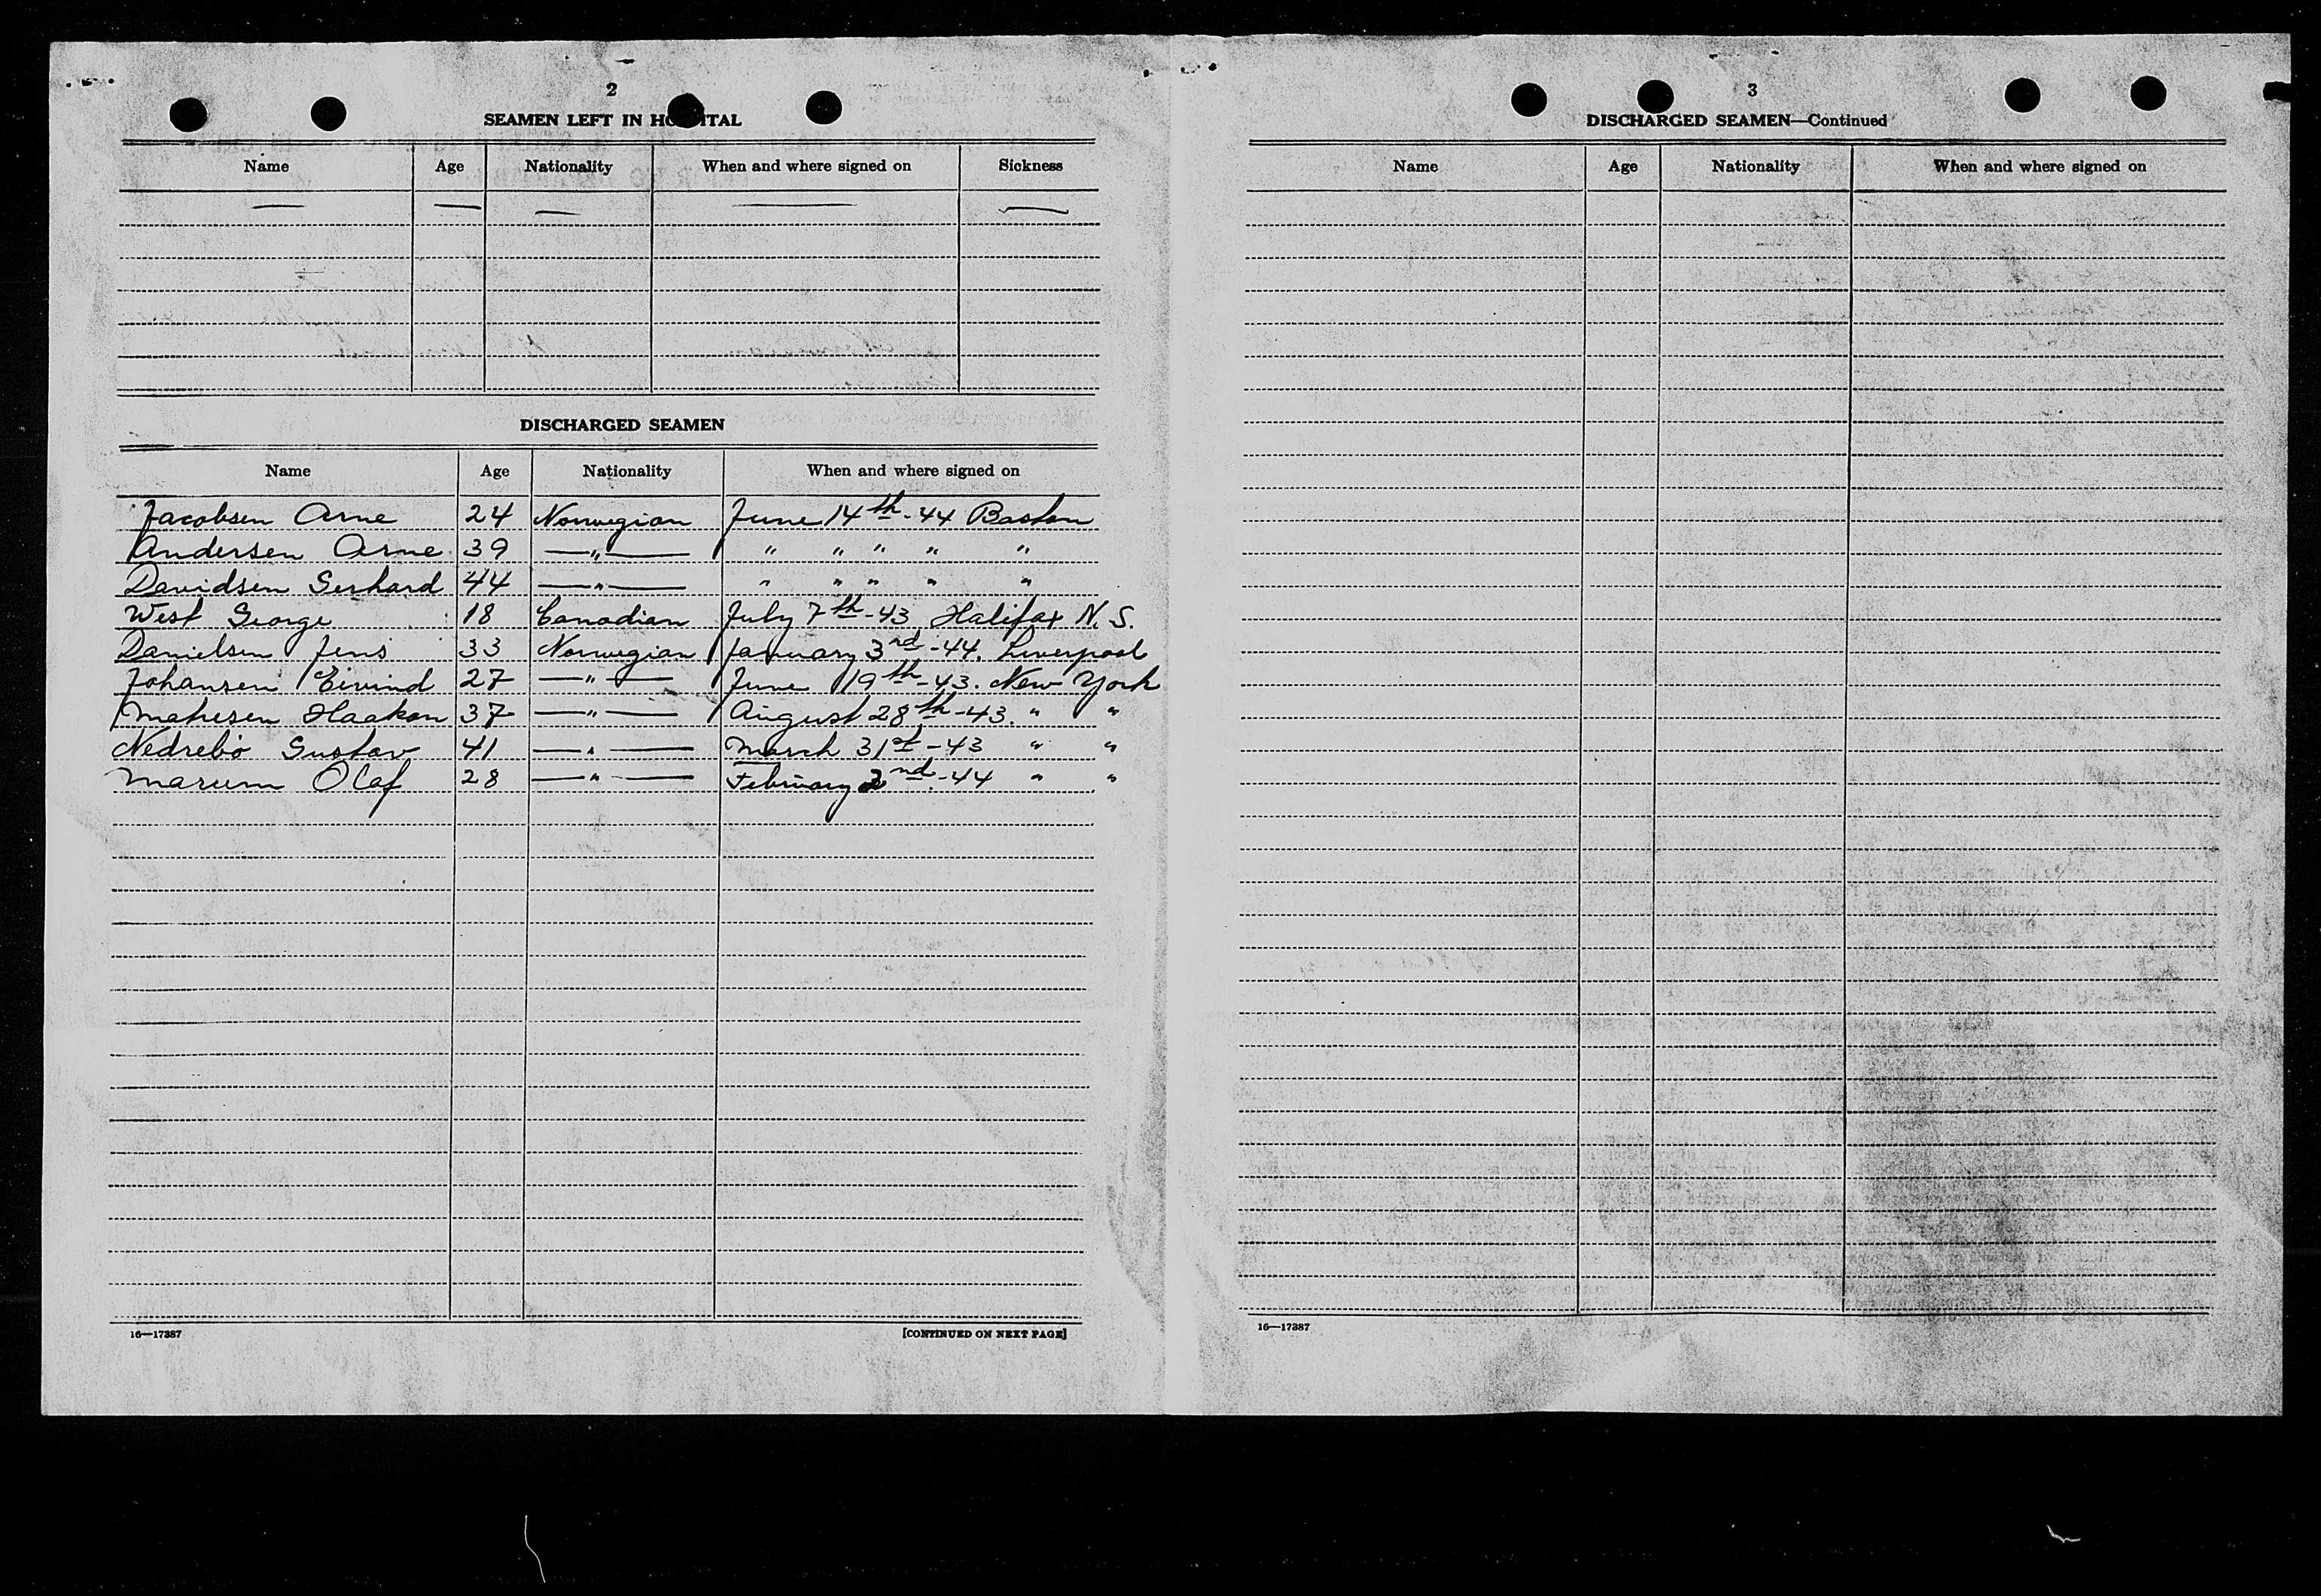 2
SEAMEN LEFT IN HOSPITAL
Name Age Nationality When and where signed on Sickness
DISCHARGED SEAMEN
Name Age Nationality When and where signed on
Jacobsen Arne 24 Norwegian June 14th-44 Boston
Andersen Arne 39 —"— " " " " "
Davidsen Gerhard 44 —"— " " " " "
West George 18 Canadian July 7th-43 Halifax N.S.
Danielsen Jens 33 Norwegian January 3rd-44. Liverpool
Johansen Eivind 27 —"— June 19th-43. New York
Mathesen Haakon 37 —"— August 28th-43. " "
Nedrebö Gustav 41 —"— March 31st-43 " "
Marum Olaf 28 —"— February 2nd.-44 " "
16—17387 [CONTINUED ON NEXT PAGE]
3
DISCHARGED SEAMEN—Continued
Name Age Nationality When and where signed on
16—17387